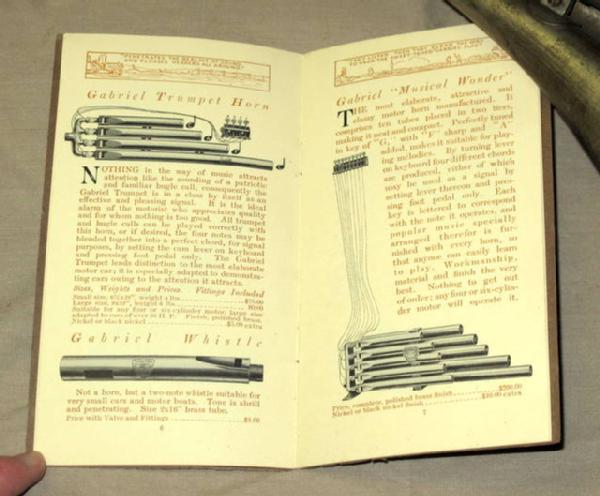 Gabriel Trumpet Horn
NOTHING in the way of music attracts
attention like the sounding of a patriotic
and familiar bugle call, consequently the
Gabriel Trumpet is in a class by itself as an
effective and pleasing signal. It is the ideal
alarm of the motorist who appreciates quality
and for whom nothing is too good. All trumpet
and bugle calls can be played correctly with
this horn, or if desired, the four notes may be
blended together into a perfect chord, for signal
purposes, by setting the cam lever on keyboard
and pressing foot pedal only. The Gabriel
Trumpet lends distinction to the most elaborate
motor car; it is especially adapted to demonstra-
ting cars owing to the attention it attracts.
Sizes, Weights and Prices. Fittings Included
Small size, weight 4 lbs.
Large size, weight 6 lbs.
Suitable for any four or six-cylinder motor; large size
adapted to cars of over H. P. Finish, polished brass.
Nickel or black nickel $5.00 extra
Gabriel Whistle
Not a horn, but a two-note whistle suitable for
very small cars and motor boats. Tone is shrill
and penetrating. Size 2x16" brass tube.
Price with Valve and Fittings
6
Gabriel "Musical Wonder"
THE most elaborate, attractive and
classy motor horn manufactured. It
comprises ten tubes placed in two rows,
making it neat and compact. Perfectly tuned
in key of "G," with "F" sharp and "A"
added, makes it suitable for play-
ing melodies. By turning lever
on keyboard four different chords
are produced, either of which
may be used as a signal by
setting lever thereon and pres-
sing foot pedal only. Each
key is lettered to correspond
with the note it operates, and
popular music specially
arranged therefor is fur-
nished with every horn, so
that anyone can easily learn
to play. Workmanship,
material and finish the very
best. Nothing to get out
of order; any four or six-cylin-
der motor will operate it.
Price, complete, polished brass finish
Nickel or black nickel finish extra
7